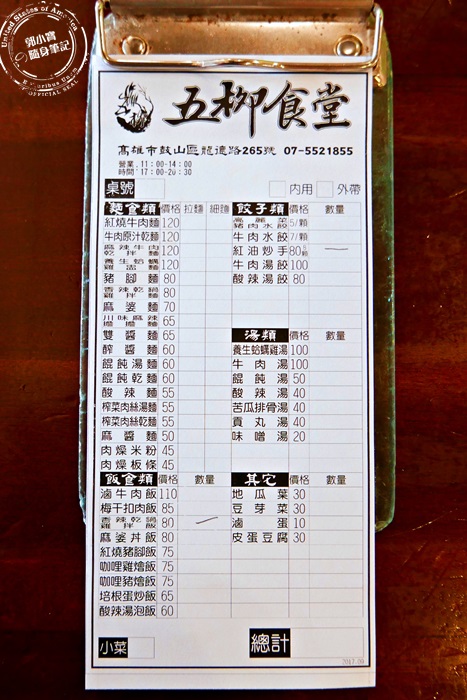 United States of America
郭小寶
隨身筆記
E Pluribus Unum
OFFICIAL SEAL
五柳食堂
高雄市鼓山區龍德路265號 07-5521855
營業 11:00-14:00
時間 17:00-20:30
桌號 內用 外帶
麵食類 價格 拉麵 細麵
紅燒牛肉麵 120
牛肉原汁乾麵 120
麻辣牛肉乾拌麵 120
養生蛤蠣雞湯麵 120
豬腳麵 80
香辣乾鍋雞拌麵 80
麻婆麵 70
川味麻辣擔擔麵 65
雙醬麵 65
醡醬麵 60
餛飩湯麵 60
餛飩乾麵 60
酸辣麵 55
榨菜肉絲湯麵 55
榨菜肉絲乾麵 55
麻醬麵 50
肉燥米粉 45
肉燥板條 45
飯食類 價格 數量
滷牛肉飯 110
梅干扣肉飯 85
香辣乾鍋雞拌飯 80
麻婆丼飯 80
紅燒豬腳飯 75
咖哩雞燴飯 75
咖哩豬燴飯 75
培根蛋炒飯 65
酸辣湯泡飯 60
餃子類 價格 數量
高麗菜豬肉水餃 5/顆
牛肉水餃 7/顆
紅油炒手 80/
牛肉湯餃 100
酸辣湯餃 80
湯類 價格 數量
養生蛤蠣雞湯 100
牛肉湯 100
餛飩湯 50
酸辣湯 40
苦瓜排骨湯 40
貢丸湯 40
味噌湯 20
其它 價格 數量
地瓜葉 30
豆芽菜 30
滷蛋 10
皮蛋豆腐 30
小菜 總計
2017.09